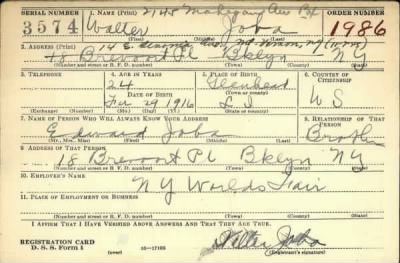 SERIAL NUMBER 1. NAME (Print) ORDER NUMBER
3574 Walter Joba 1986
(First) (Middle) (Last)
2. ADDRESS (Print)
18 Brevoort Pl Bklyn NY
(Number and street or R. F. D. number) (Town) (County) (State)
3. TELEPHONE 4. AGE IN YEARS 5. PLACE OF BIRTH 6. COUNTRY OF CITIZENSHIP
24 Glenhead
DATE OF BIRTH (Town or county)
29 1916 L I U S
(Exchange) (Number) (Mo.) (Day) (Yr.) (State or country)
7. NAME OF PERSON WHO WILL ALWAYS KNOW YOUR ADDRESS 8. RELATIONSHIP OF THAT PERSON
Edward Joba Brother
(Mr., Mrs., Miss) (First) (Middle) (Last)
9. ADDRESS OF THAT PERSON
18 Brevoort Pl Bklyn NY
(Number and street or R. F. D. number) (Town) (County) (State)
10. EMPLOYER'S NAME
N Y Worlds Fair
11. PLACE OF EMPLOYMENT OR BUSINESS
(Number and street or R. F. D. number) (Town) (County) (State)
I AFFIRM THAT I HAVE VERIFIED ABOVE ANSWERS AND THAT THEY ARE TRUE.
REGISTRATION CARD
D. S. S. Form 1 (over) 16—17105 Walter Joba
(Registrant's signature)